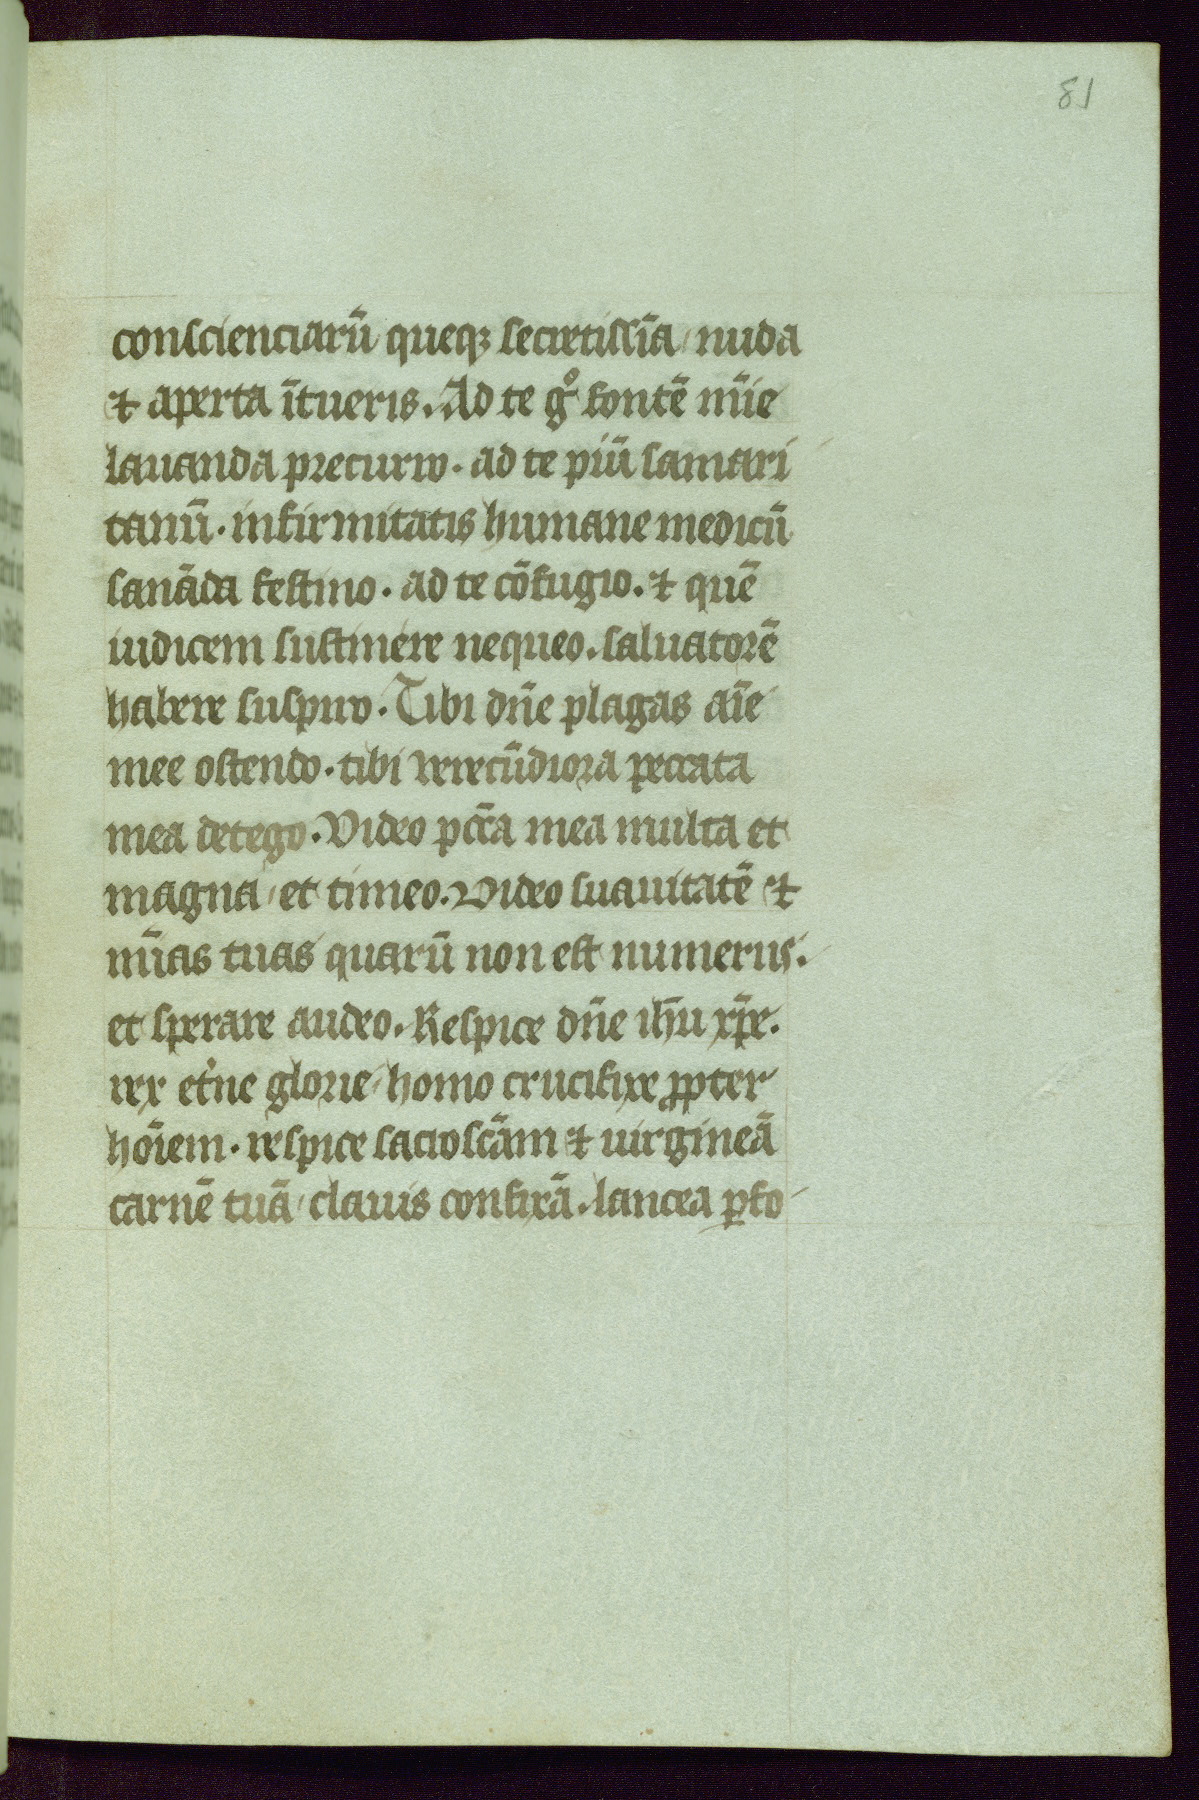 81
conscienciarū queqꝫ secretissīa / nuda
⁊ aperta ītueris. Ad te gͦ fontē mīe
lauanda precurro. ad te piū samari
tanū. infirmitatis humane medicū
sanāda festino. ad te cōfugio. ⁊ quē
iudicem sustinere nequeo. saluatorē
habere suspiro. Tibi dn̄e plagas aīe
mee ostendo. tibi verecūdiora peccata
mea detego. Video pccā mea multa et
magna / et timeo. Video suauitatē ⁊
mīas tuas quarū non est numerus.
et sperare audeo. Respice dn̄e ihū xp̄e.
rex et̉ne glorie / homo crucifixe ꝓpter
hoīem. respice sacroscām ⁊ uirgineā
carnē tuā / clauis confixā. lancea ꝑfo